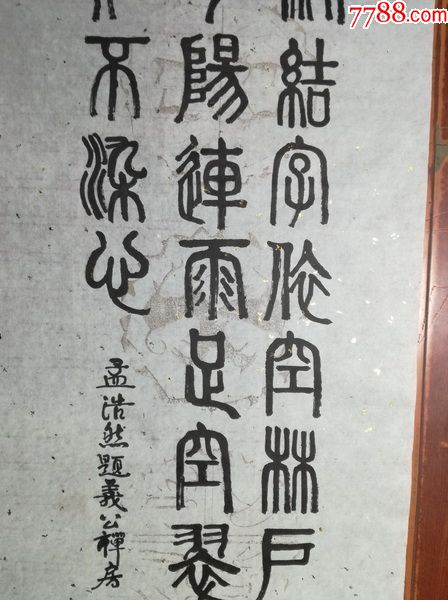 7788.com
結字依空林戶
陽連雨足空翠
不染心
孟浩然題義公禪房